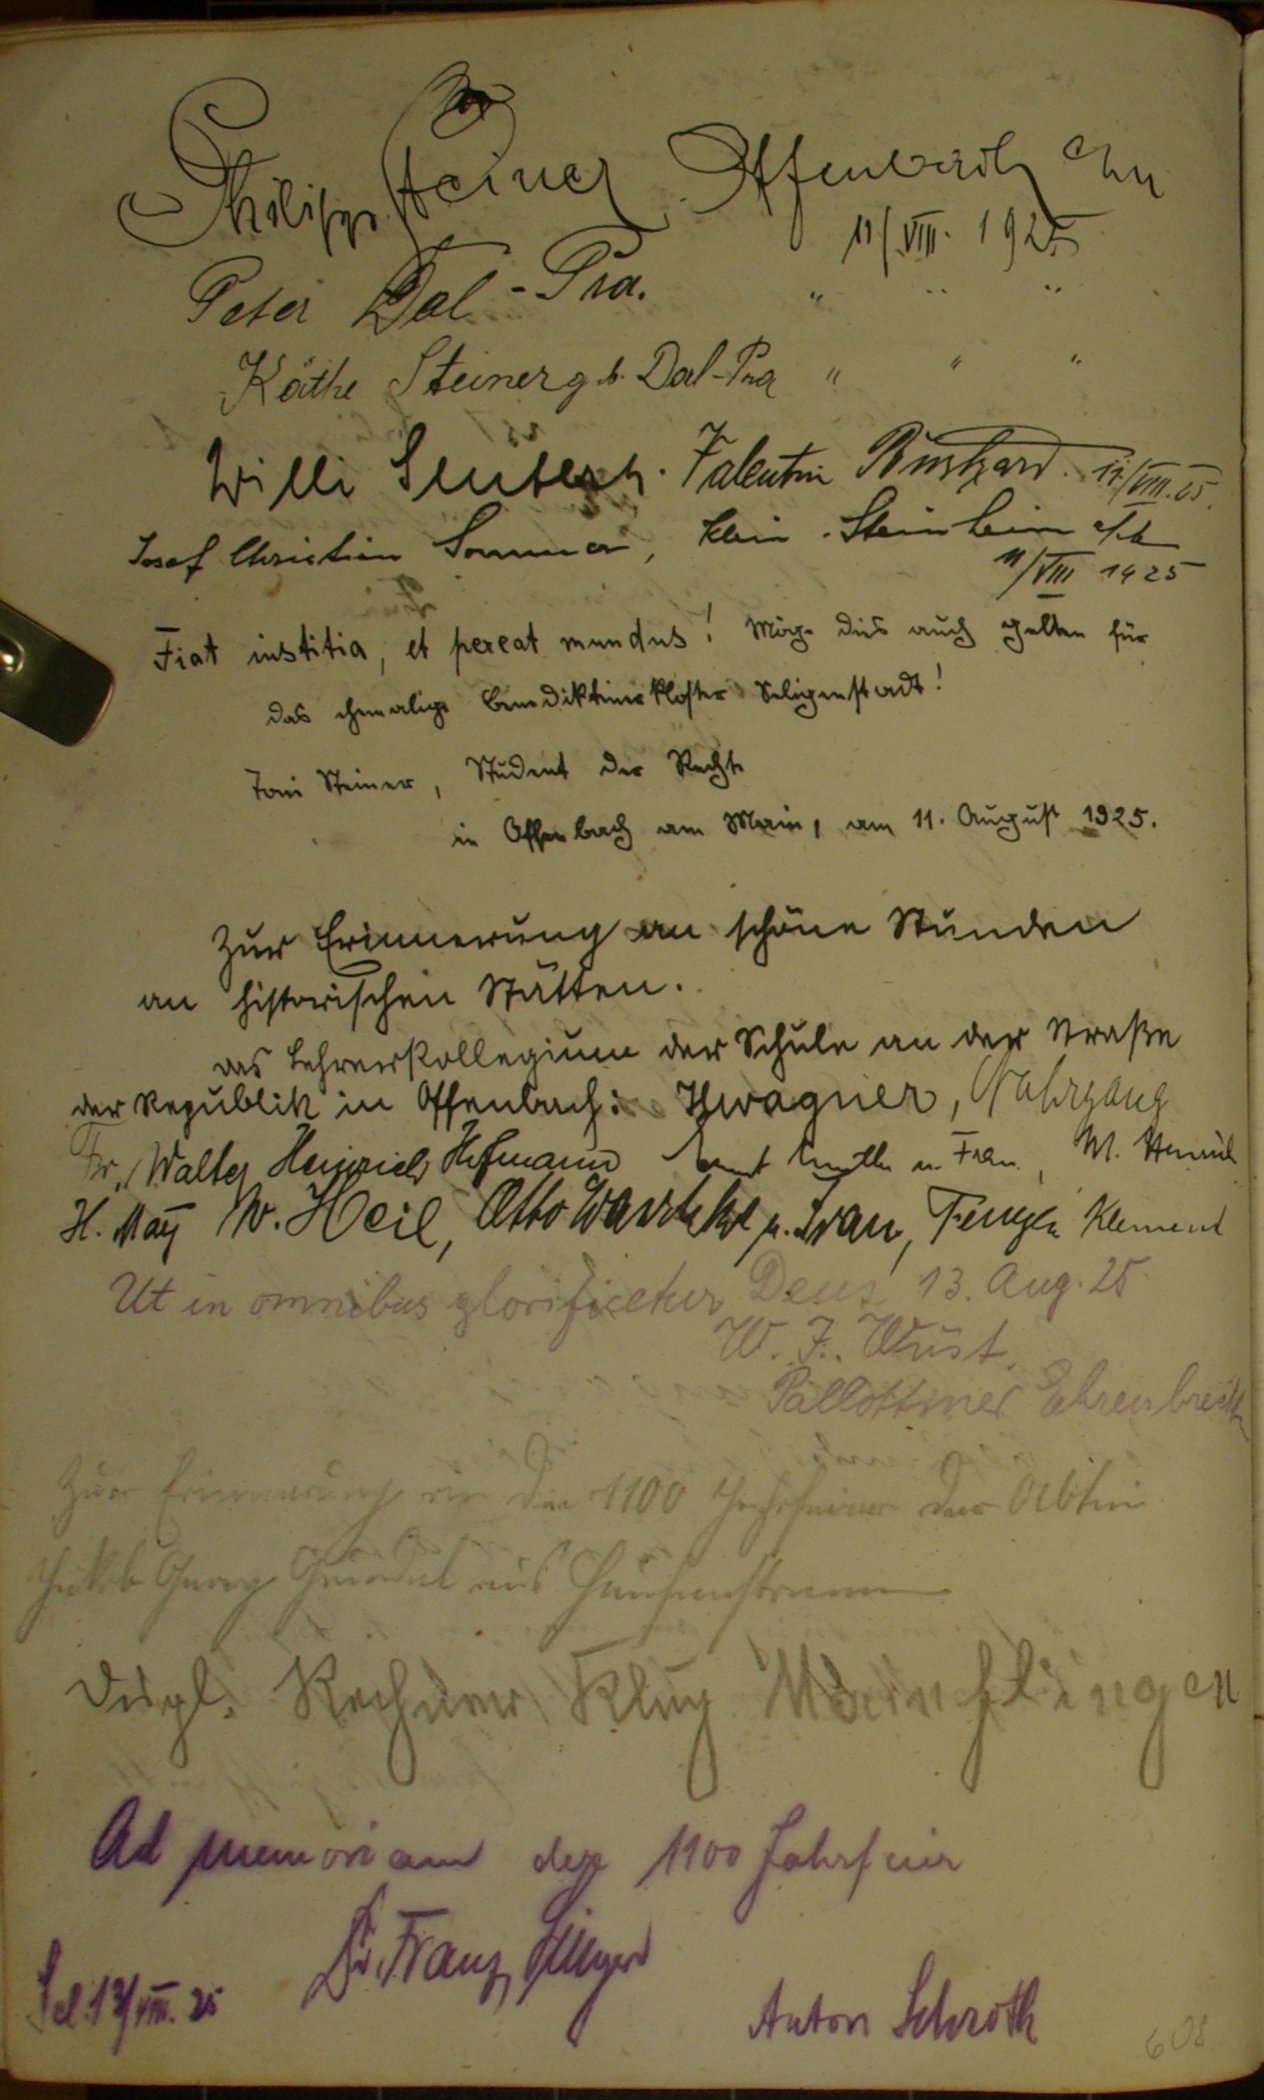 Philipp Steiner Offenbach a/M
11/VIII. 1925
Peter Dal-Pra. " " "
Käthe Steiner gb. Dal-Pra " " "
Willi Valentin Burkard. 11/VIII.25.
Josef Christian Sommer, Klein-Steinheim a/M
11/VIII 1925
Fiat institia, et pereat mundus! Möge dies auch gelten für
das ehemalige Benediktinerkloster Seligenstadt!
Toni Steiner, Student der Rechte
in Offenbach am Main, am 11. August 1925.
Zur Erinnerung an schöne Stunden
an historischen Stätten.
Das Lehrerkollegium der Schule an der Straße
der Republik in Offenbach: HWagner, Nahrgang
Fr. Walter Heinrich Hofmann Ernst u. Frau, W.
H. May W. Heil, Otto u. Frau, Klement
Ut in omnibus glorificetur Deus 13. Aug. 25.
W. F. Wüst.
Pallottiner Ehrenbreitst
Zur Erinnerung an die 1100 Jahrfeier der Abtei
Jakob Georg aus Hausenstamm
Dupl. Rechner Klug Mainflingen
Ad memoriam der 1100 Jahrfeier
Dr. Franz
Sel. 13/VIII. 25
Anton Schroth
608